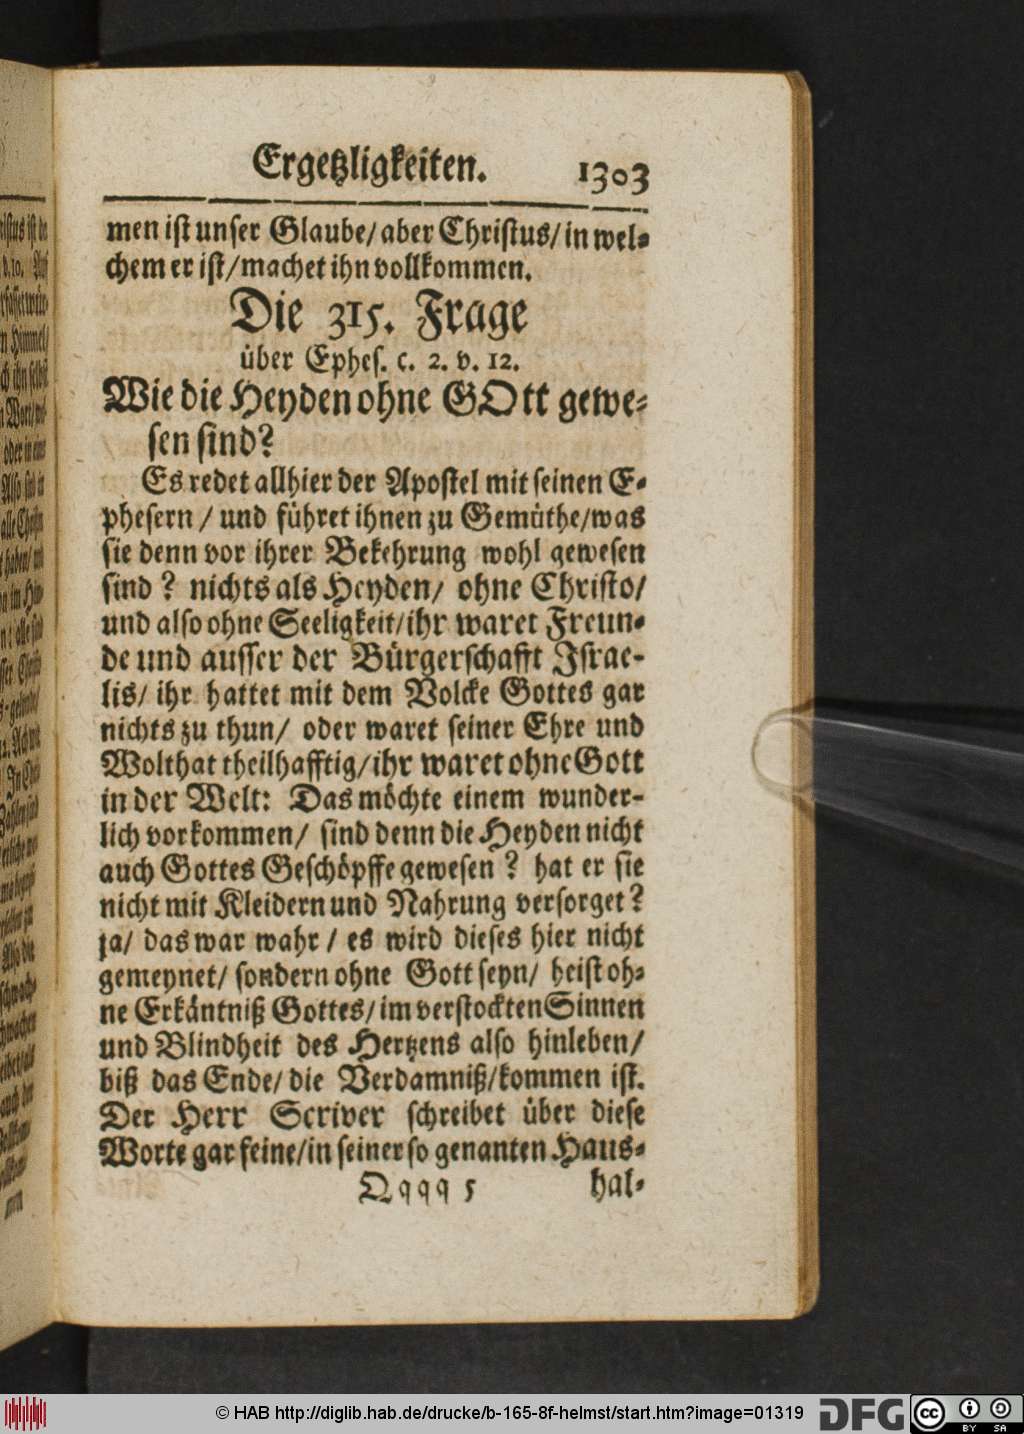 Ergetzligkeiten. 1303
men ist unser Glaube/ aber Christus/ in wel-
chem er ist/ machet ihn vollkommen.
Die 315. Frage
über Ephes. c. 2. v. 12.
Wie die Heyden ohne GOtt gewe-
sen sind?
Es redet allhier der Apostel mit seinen E-
phesern / und führet ihnen zu Gemüthe/ was
sie denn vor ihrer Bekehrung wohl gewesen
sind ? nichts als Heyden/ ohne Christo/
und also ohne Seeligkeit/ ihr waret Freun-
de und ausser der Bürgerschafft Israe-
lis/ ihr hattet mit dem Volcke Gottes gar
nichts zu thun/ oder waret seiner Ehre und
Wolthat theilhafftig/ ihr waret ohne Gott
in der Welt: Das möchte einem wunder-
lich vorkommen/ sind denn die Heyden nicht
auch Gottes Geschöpffe gewesen ? hat er sie
nicht mit Kleidern und Nahrung versorget?
ja/ das war wahr / es wird dieses hier nicht
gemeynet/ sondern ohne Gott seyn/ heist oh-
ne Erkäntniß Gottes/ im verstockten Sinnen
und Blindheit des Hertzens also hinleben/
biß das Ende/ die Verdamniß/ kommen ist.
Der Herr Scriver schreibet über diese
Worte gar feine/ in seiner so genanten Haus-
Qqqq 5 hal-
© HAB http://diglib.hab.de/drucke/b-165-8f-helmst/start.htm?image=01319
DFG
cc BY SA